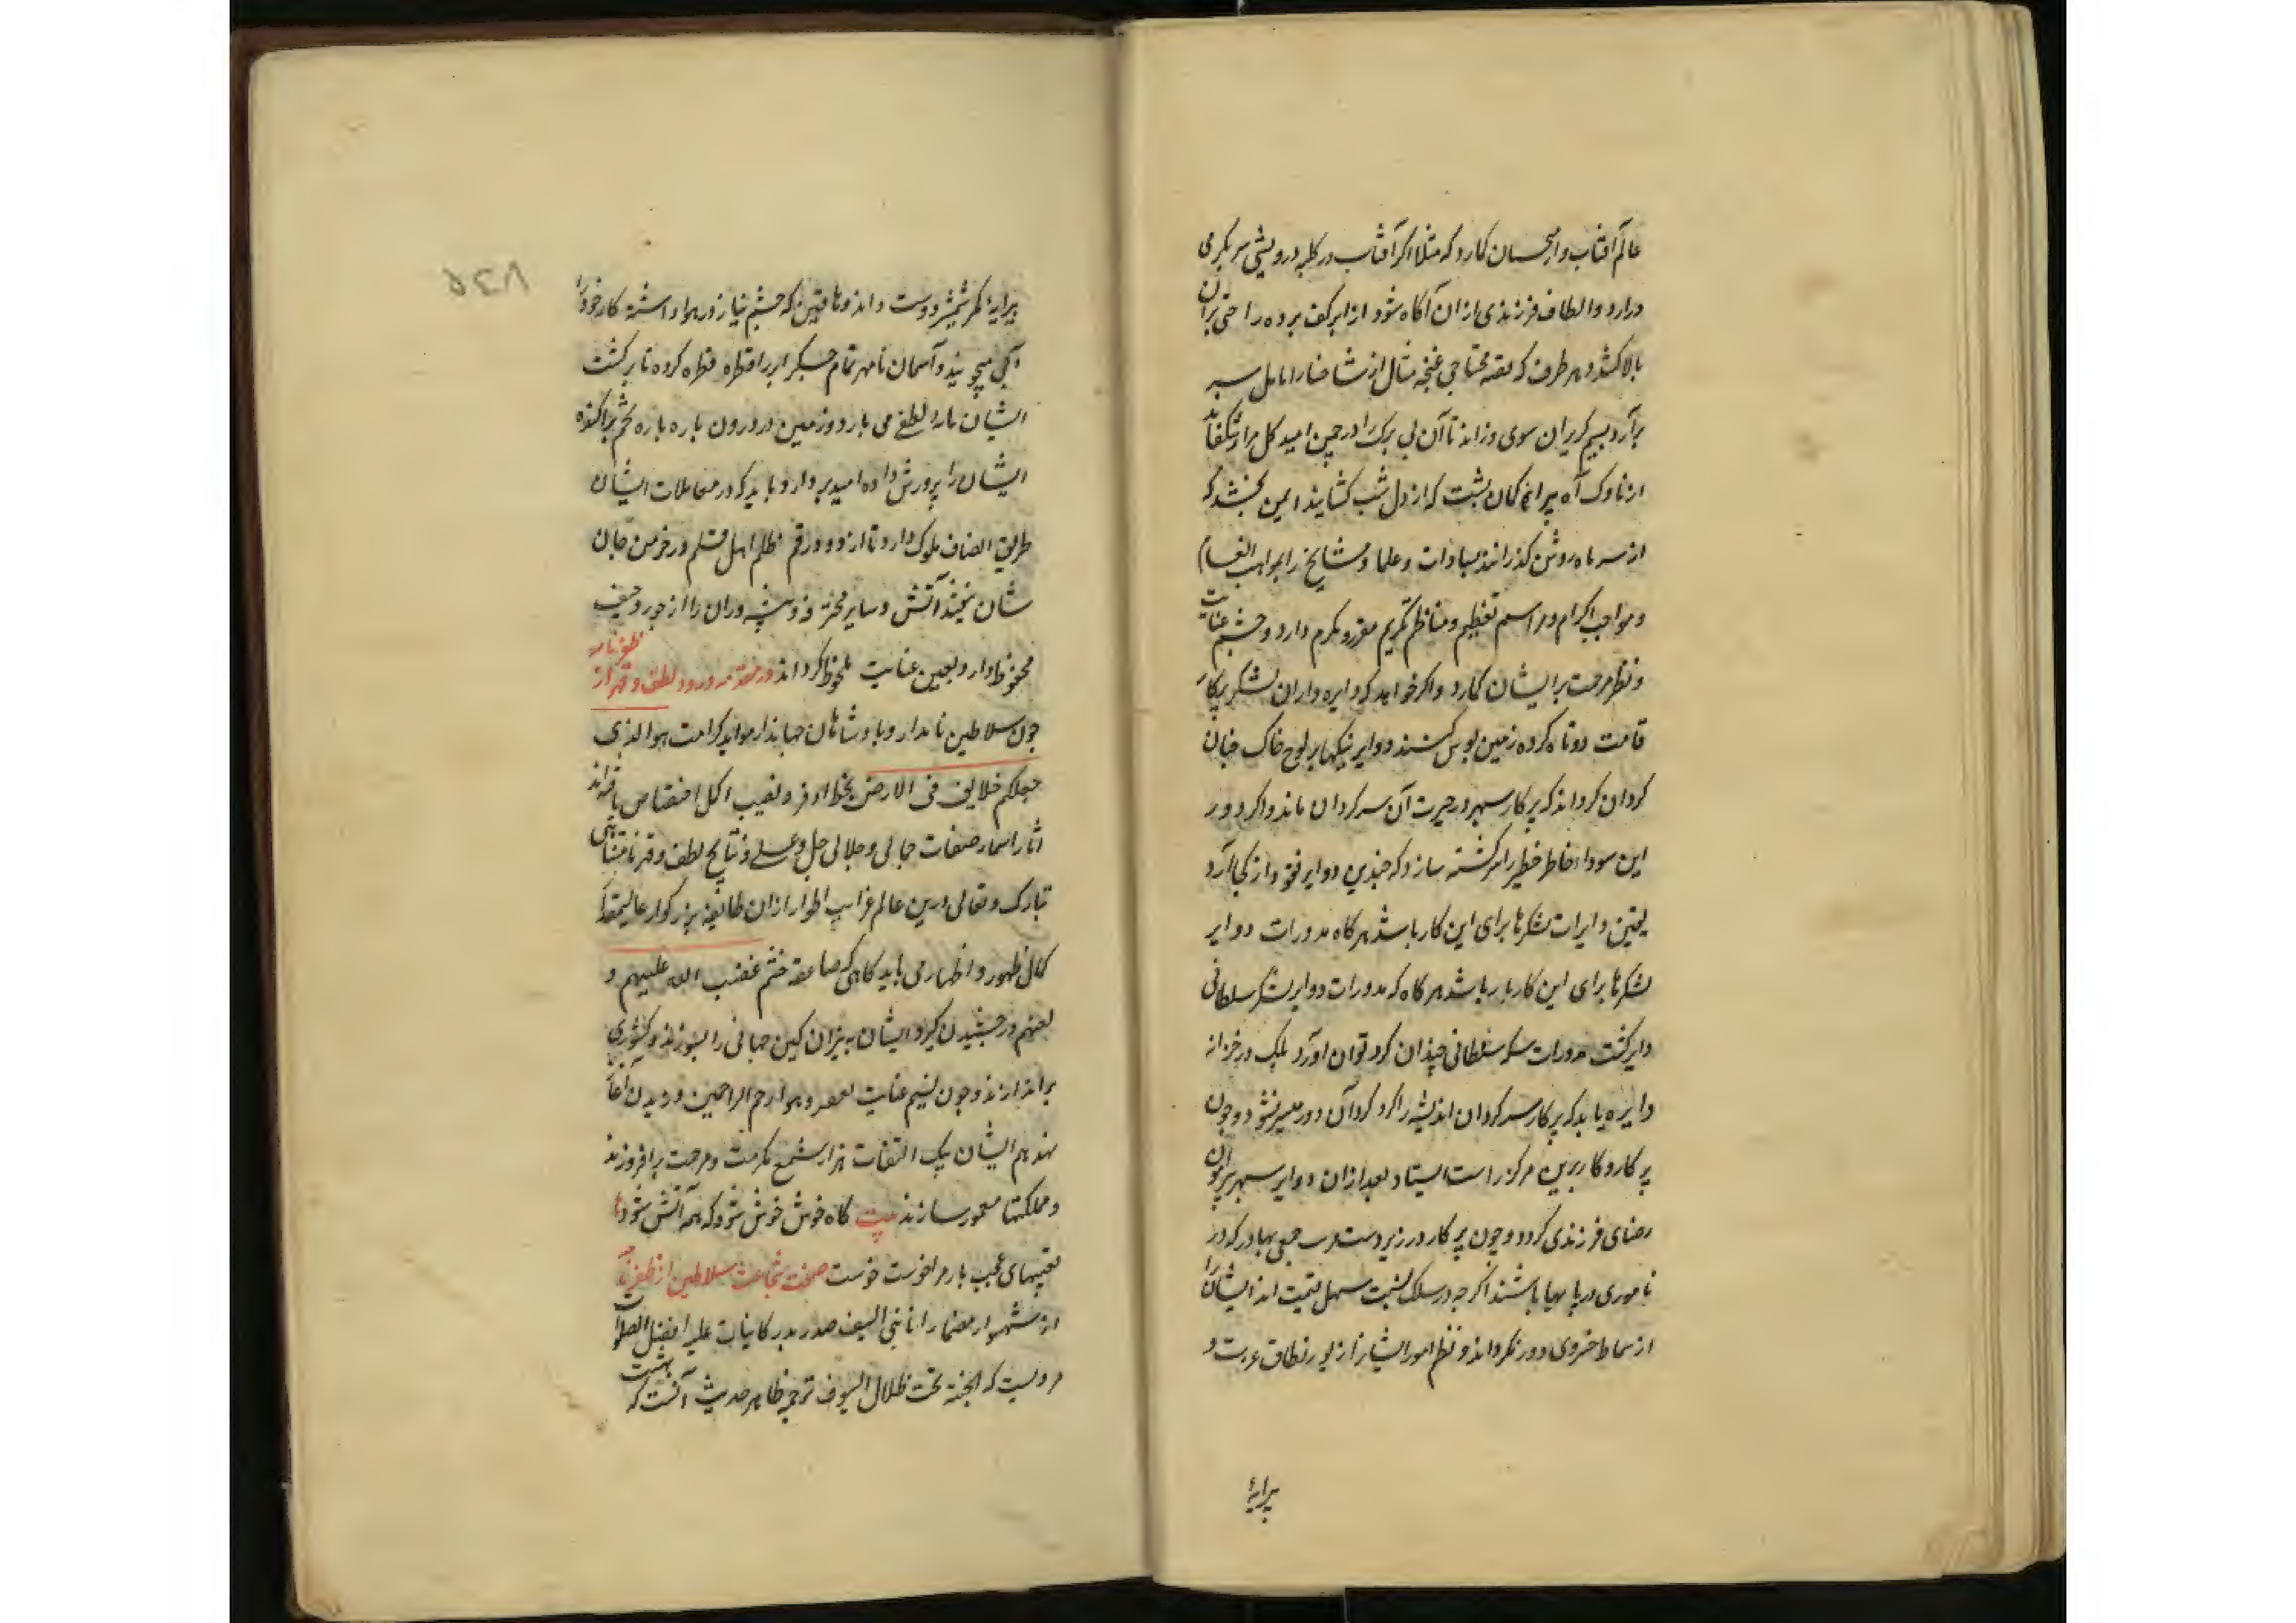 عالم آفتاب وار احسان کارد که مثلا اگر آفتاب در کلبه درویشی سر بگرمی
درارد و الطاف فرزندی ازان آگاه شود از ابر کف برده راحتی بران
بالا کشد و هر طرف که محتاجی غنچه مثال از شاخسار امل سر
برآرد نسیم کرم بران سوی وزاند تا آن بی برک را در چمن امید کل مراد شکفاند
از ناوک آه پیرانی کمان پشت که از دل شب کشایند ایمن بخشد که
از سر ماه روشن کذرانند سادات و علما و مشایخ را بمواهب انعام
و مواجب اکرام و مراسم تعظیم و مناظم تکریم معزز و مکرم دارد و چشم عنایت
و نظر مرحمت بر ایشان کمارد و اگر خواهد که دایره داران لشکر پرکار
قامت دوتاه کرده زمین بوس کنند دوایر نیکیها بر لوح خاک چنان
کردان کرداند که پرکار سپهر در حیرت آن سرکردان ماند و اگر دور
این سودا خاطر خطیر را سرکشته سازد که چندین دوایر نقود از کجا آرد
یقین دایرات لشکرها برای این کار باشد هرگاه مدورات دوایر
لشکرها برای این کار بار باشد هرگاه که مدورات دوایر لشکر سلطانی
دایر کشت مدورات سکه سلطانی چندان کرد توان آورد بلک در خزانه
دایره یابد که پرکار سرکردان اندیشه را کرد کرد آن دور میسر نشود و چون
پرکار وکار برین مرکز راست ایستاد بعد ازان دوایر سپهر پیرامون
رضای فرزندی کردد و چون پرکار در زیر دست جمعی بهادر که در
ناموری دریا بها باشند اگرچه در سلک نسبت سهل قیمت اند ایشان را
از سماط خسروی دور نکرداند و نظم امور ایشان از نور نطاق عربت و
پیرایهٔ
۵۲۸
پیرایهٔ کمر شمشیر دوست داند و دهاقین که چشم نیاز در هوا داشته کار خود را
آبی میجویند و آسمان نامهر تمام جگر ابر را قطره قطره کرده تا بر کشت
ایشان باران لطفی می بارد و زمین در درون باره باره تخم پراکنده
ایشان را پرورش داده امید بر دارد باید که در معاملات ایشان
طریق انصاف ملوک دارد تا از دود رقم ظلم اهل قلم در خرمن جان
شان نیفتد آتش و سایر محترفه و پیشه وران را از جور و حیف
محفوظ دارد و بعین عنایت ملحوظ کرداند در مقدمه ورود لطف و قهر از ظفرنامه
چون سلاطین نامدار و پادشاهان جهاندار موائد کرامت هو الذی
جعلکم خلایف فی الارض بحظ اوفر و نصیب اکمل اختصاص یافته اند
آثار اسما و صفات جمالی و جلالی جل و علی و نتایج لطف و قهر نامتناهی
تبارک و تعالی درین عالم غرایب اطوار ازان طایفه بزرکوار عالیمقدار
کمال ظهور و اظهار می یابد کاهی که صاعقه خشم غضب الله علیهم و
لعنهم درخشیدن کیرد ایشان به نیران کین جهانی را بسوزند و کشوری
براندازند و چون نسیم عنایت لعمری و هو ارحم الراحمین وزیدن آغاز
نهد هم ایشان بیک التفات هزار شمع مکرمت و مرحمت برافروزند
و مملکتها معمور سازند بیت کاه خوش خوش شود که همه آتش شود
تعبیهای عجب یار مرا خوست خوست صفت شجاعت سلاطین از ظفرنامه
از شهسوار مضمار انا نبی السیف صدر بدر کاینات علیه افضل الصلوات
مرویست که الجنة تحت ظلال السیوف ترجمه ظاهر حدیث آنست که بهشت